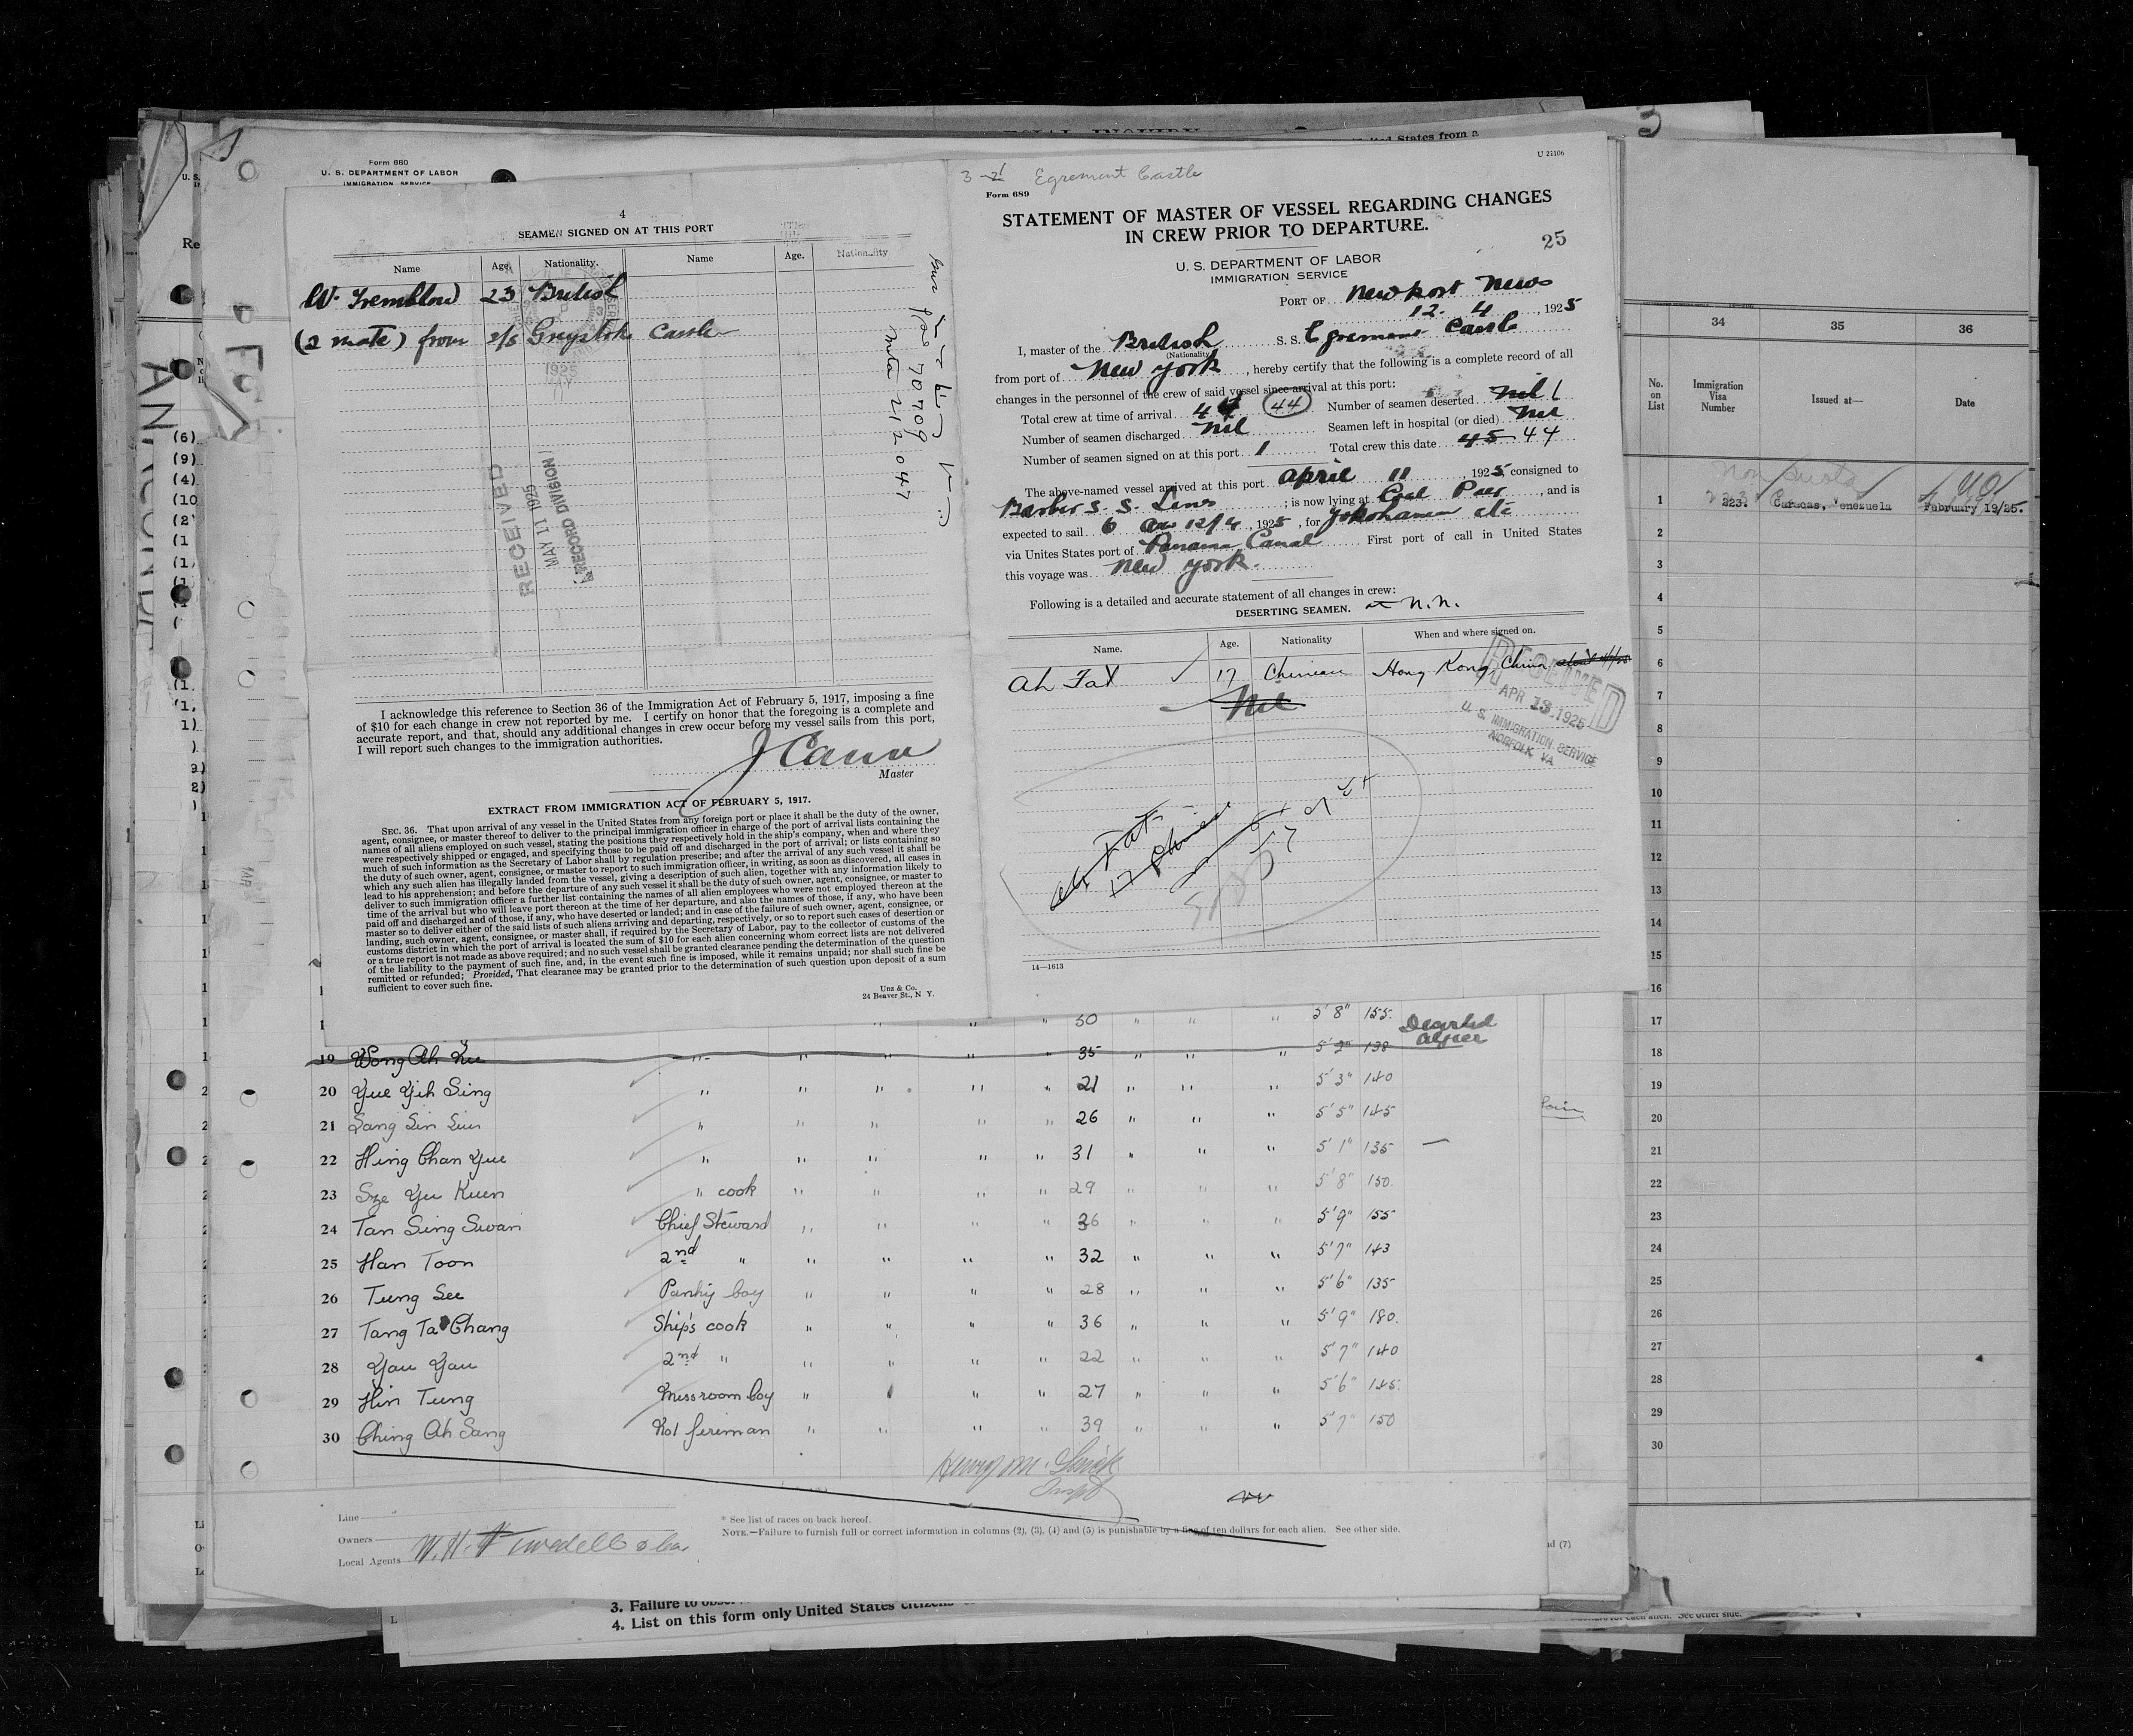 Form 680
U. S. DEPARTMENT OF LABOR
IMMIGRATION SERVICE
4
SEAMEN SIGNED ON AT THIS PORT
Name Age. Nationality. Name Age. Nationality
W. Tremblow 23 British
(2 mate) from s/s Greystoke Castle
RECEIVED
MAY 11 1925
RECORD DIVISION
I acknowledge this reference to Section 36 of the Immigration Act of February 5, 1917, imposing a fine
of $10 for each change in crew not reported by me. I certify on honor that the foregoing is a complete and
accurate report, and that, should any additional changes in crew occur before my vessel sails from this port,
I will report such changes to the immigration authorities.
Master
EXTRACT FROM IMMIGRATION ACT OF FEBRUARY 5, 1917.
SEC. 36. That upon arrival of any vessel in the United States from any foreign port or place it shall be the duty of the owner,
agent, consignee, or master thereof to deliver to the principal immigration officer in charge of the port of arrival lists containing the
names of all aliens employed on such vessel, stating the positions they respectively hold in the ship's company, when and where they
were respectively shipped or engaged, and specifying those to be paid off and discharged in the port of arrival; or lists containing so
much of such information as the Secretary of Labor shall by regulation prescribe; and after the arrival of any such vessel it shall be
the duty of such owner, agent, consignee, or master to report to such immigration officer, in writing, as soon as discovered, all cases in
which any such alien has illegally landed from the vessel, giving a description of such alien, together with any information likely to
lead to his apprehension; and before the departure of any such vessel it shall be the duty of such owner, agent, consignee, or master to
deliver to such immigration officer a further list containing the names of all alien employees who were not employed thereon at the
time of the arrival but who will leave port thereon at the time of her departure, and also the names of those, if any, who have been
paid off and discharged and of those, if any, who have deserted or landed; and in case of the failure of such owner, agent, consignee, or
master so to deliver either of the said lists of such aliens arriving and departing, respectively, or so to report such cases of desertion or
landing, such owner, agent, consignee, or master shall, if required by the Secretary of Labor, pay to the collector of customs of the
customs district in which the port of arrival is located the sum of $10 for each alien concerning whom correct lists are not delivered
or a true report is not made as above required; and no such vessel shall be granted clearance pending the determination of the question
of the liability to the payment of such fine, and, in the event such fine is imposed, while it remains unpaid; nor shall such fine be
remitted or refunded; Provided, That clearance may be granted prior to the determination of such question upon deposit of a sum
sufficient to cover such fine.
Unz & Co.
24 Beaver St., N Y.
U 21106
3 Egremont Castle
Form 689
STATEMENT OF MASTER OF VESSEL REGARDING CHANGES
IN CREW PRIOR TO DEPARTURE.
25
U. S. DEPARTMENT OF LABOR
IMMIGRATION SERVICE
PORT OF Newport News
12. 4 , 1925
I, master of the British S. S. Egremont Castle
(Nationality)
from port of New York , hereby certify that the following is a complete record of all
changes in the personnel of the crew of said vessel since arrival at this port:
Total crew at time of arrival 44 Number of seamen deserted nil 1
Number of seamen discharged Nil Seamen left in hospital (or died) Nil
Number of seamen signed on at this port 1 Total crew this date 45 44
The above-named vessel arrived at this port April 11 , 1925 consigned to
Barber S. S. Lines ; is now lying at Coal Pier , and is
expected to sail 6 am 12/4 , 1925 , for Yokohama etc
via Unites States port of Panama Canal First port of call in United States
this voyage was New York.
Following is a detailed and accurate statement of all changes in crew:
DESERTING SEAMEN. at N.N.
Name. Age. Nationality When and where signed on.
Ah Fat 17 Chinese Hong Kong, China
Nil
RECEIVED
APR 13 1925
U. S. IMMIGRATION SERVICE
NORFOLK VA
Ah Fat
17 Chinese
14—1613
50 " " " 5' 8" 155.
Deserted
Algier
19 Wong Ah Ku " 35 5' 2" 138
20 Yue Yih Sing " 21 5' 3" 140
21 Sang Sin Lui " 26 5' 5" 145
22 Hing Chan Yue " 31 5' 1" 135
23 Sze Yu Kuen " cook 29 5' 8" 150.
24 Tan Sing Swan Chief Steward 36 5' 9" 155
25 Han Toon 2nd " 32 5' 7" 143
26 Tung See Pantry boy 28 5' 6" 135
27 Tang Ta Chang Ship's cook 36 5' 9" 180.
28 Yau Yau 2nd " 22 5' 7" 140
29 Hin Tung Messroom boy 27 5' 6" 145.
30 Ching Ah Sang No1 fireman 39 5' 7" 150
Line
Owners
Local Agents
* See list of races on back hereof.
NOTE.—Failure to furnish full or correct information in columns (2), (3), (4) and (5) is punishable by a fine of ten dollars for each alien. See other side.
4. List on this form only United States
34 35 36
No. on List Immigration Visa Number Issued at— Date
1 223. Caracas, Venezuela February 19/25.
2
3
4
5
6
7
8
9
10
11
12
13
14
15
16
17
18
19
20
21
22
23
24
25
26
27
28
29
30